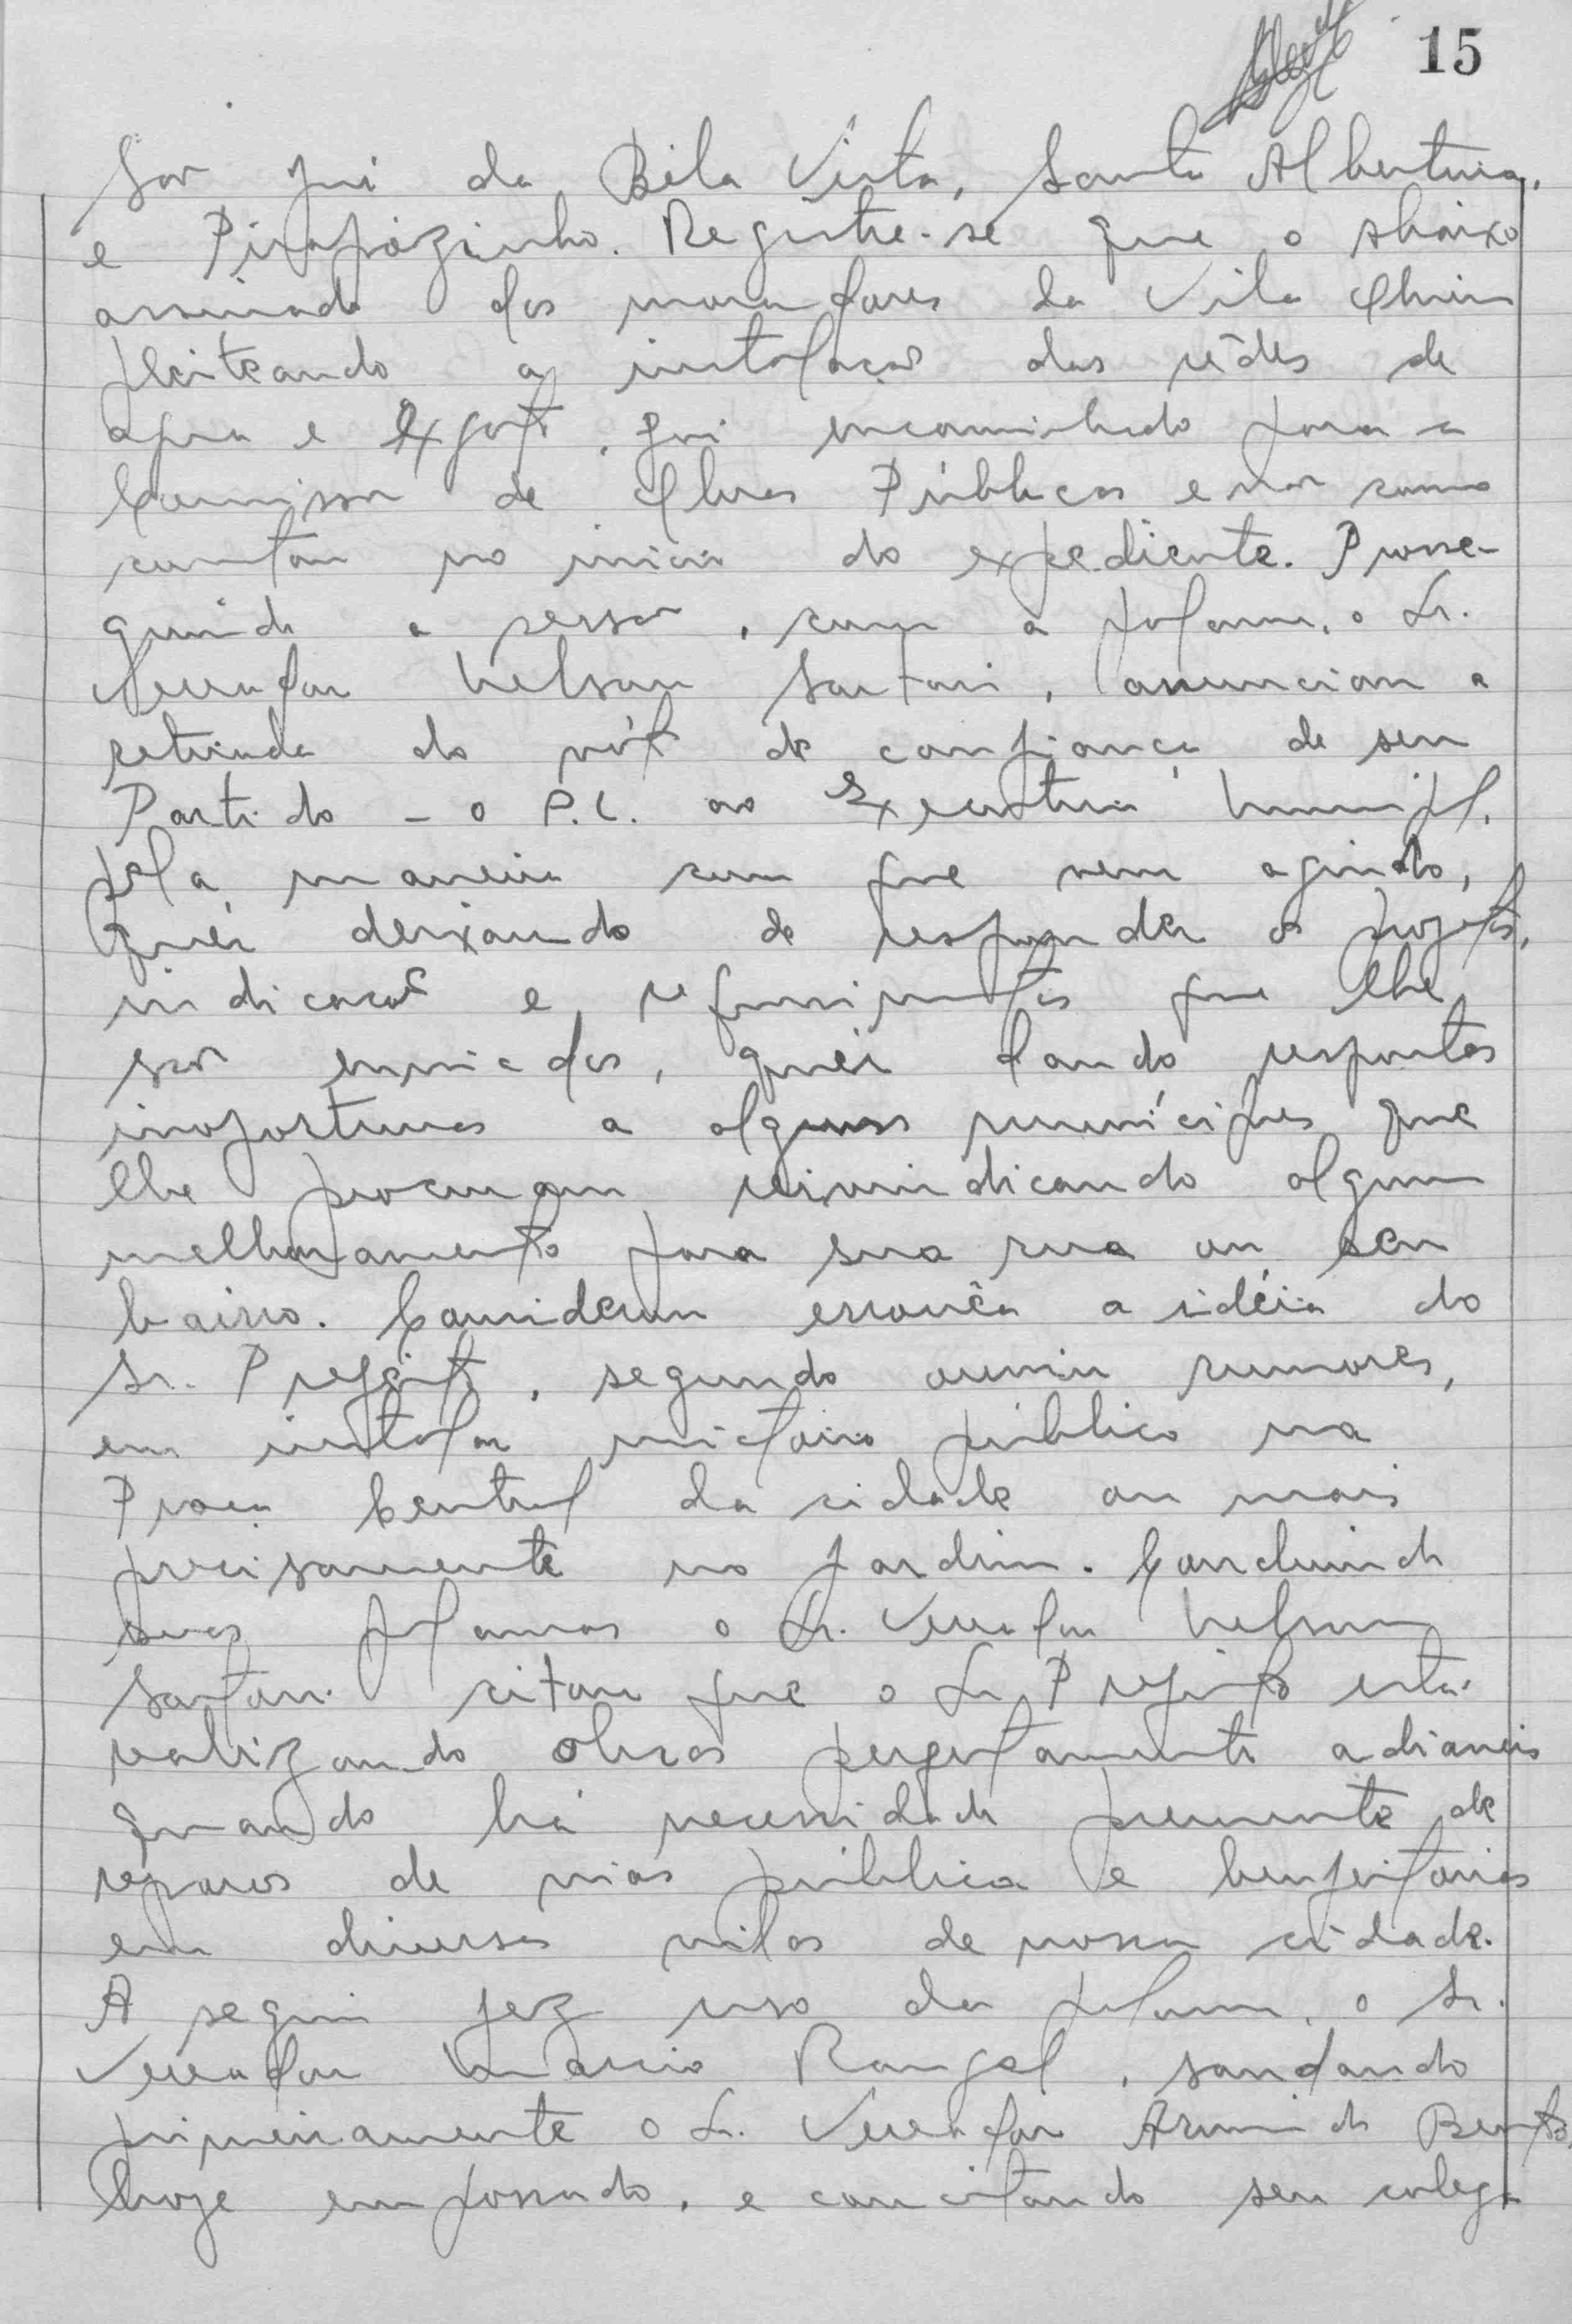 15
São José da Bela Vista, Santa Albertina,
e Pirapòzinho. Registre-se que o abaixo
assinado dos moradores da Vila
pleiteando a instalação das rêdes de
agua e Exgoto, foi encaminhado para a
Comissão de Obras Públicas e não como
constou no inicio do expediente. Prosse-
guindo a sessão, com a palavra, o Sr.
Vereador Nelson Sartori, anunciou a
retirada do vóto de confiança de seu
Partido - o P.L. ao Executivo Municipal,
pela maneira com que vem agindo,
quér deixando de responder os projetos,
indicacoẽs e requerimentos que lhe
são enviados, quér dando respostas
inoportunas a alguns munícipes que
lhe procuram reivindicando algum
melhoramento para sua rua ou seu
bairro. Considerou erronêa a idéia do
Sr. Prefeito, segundo ouviu rumores,
em instalar mictorio público na
Praça Central da cidade ou mais
precisamente no jardim. Concluindo
suas palavras o Sr. Vereador Nelson
Sartori citou que o Sr. Prefeito está
realizando obras perfeitamente adiaveis
quando há necessidade premente de
reparos de vias pública e benfeitorias
em diversas vilas de nossa cidade.
A seguir fez uso da palavra, o Sr.
Vereador Marcio Rangel, saudando
primeiramente o Sr. Vereador Armindo Bento,
hoje empossado, e concitando seu colega